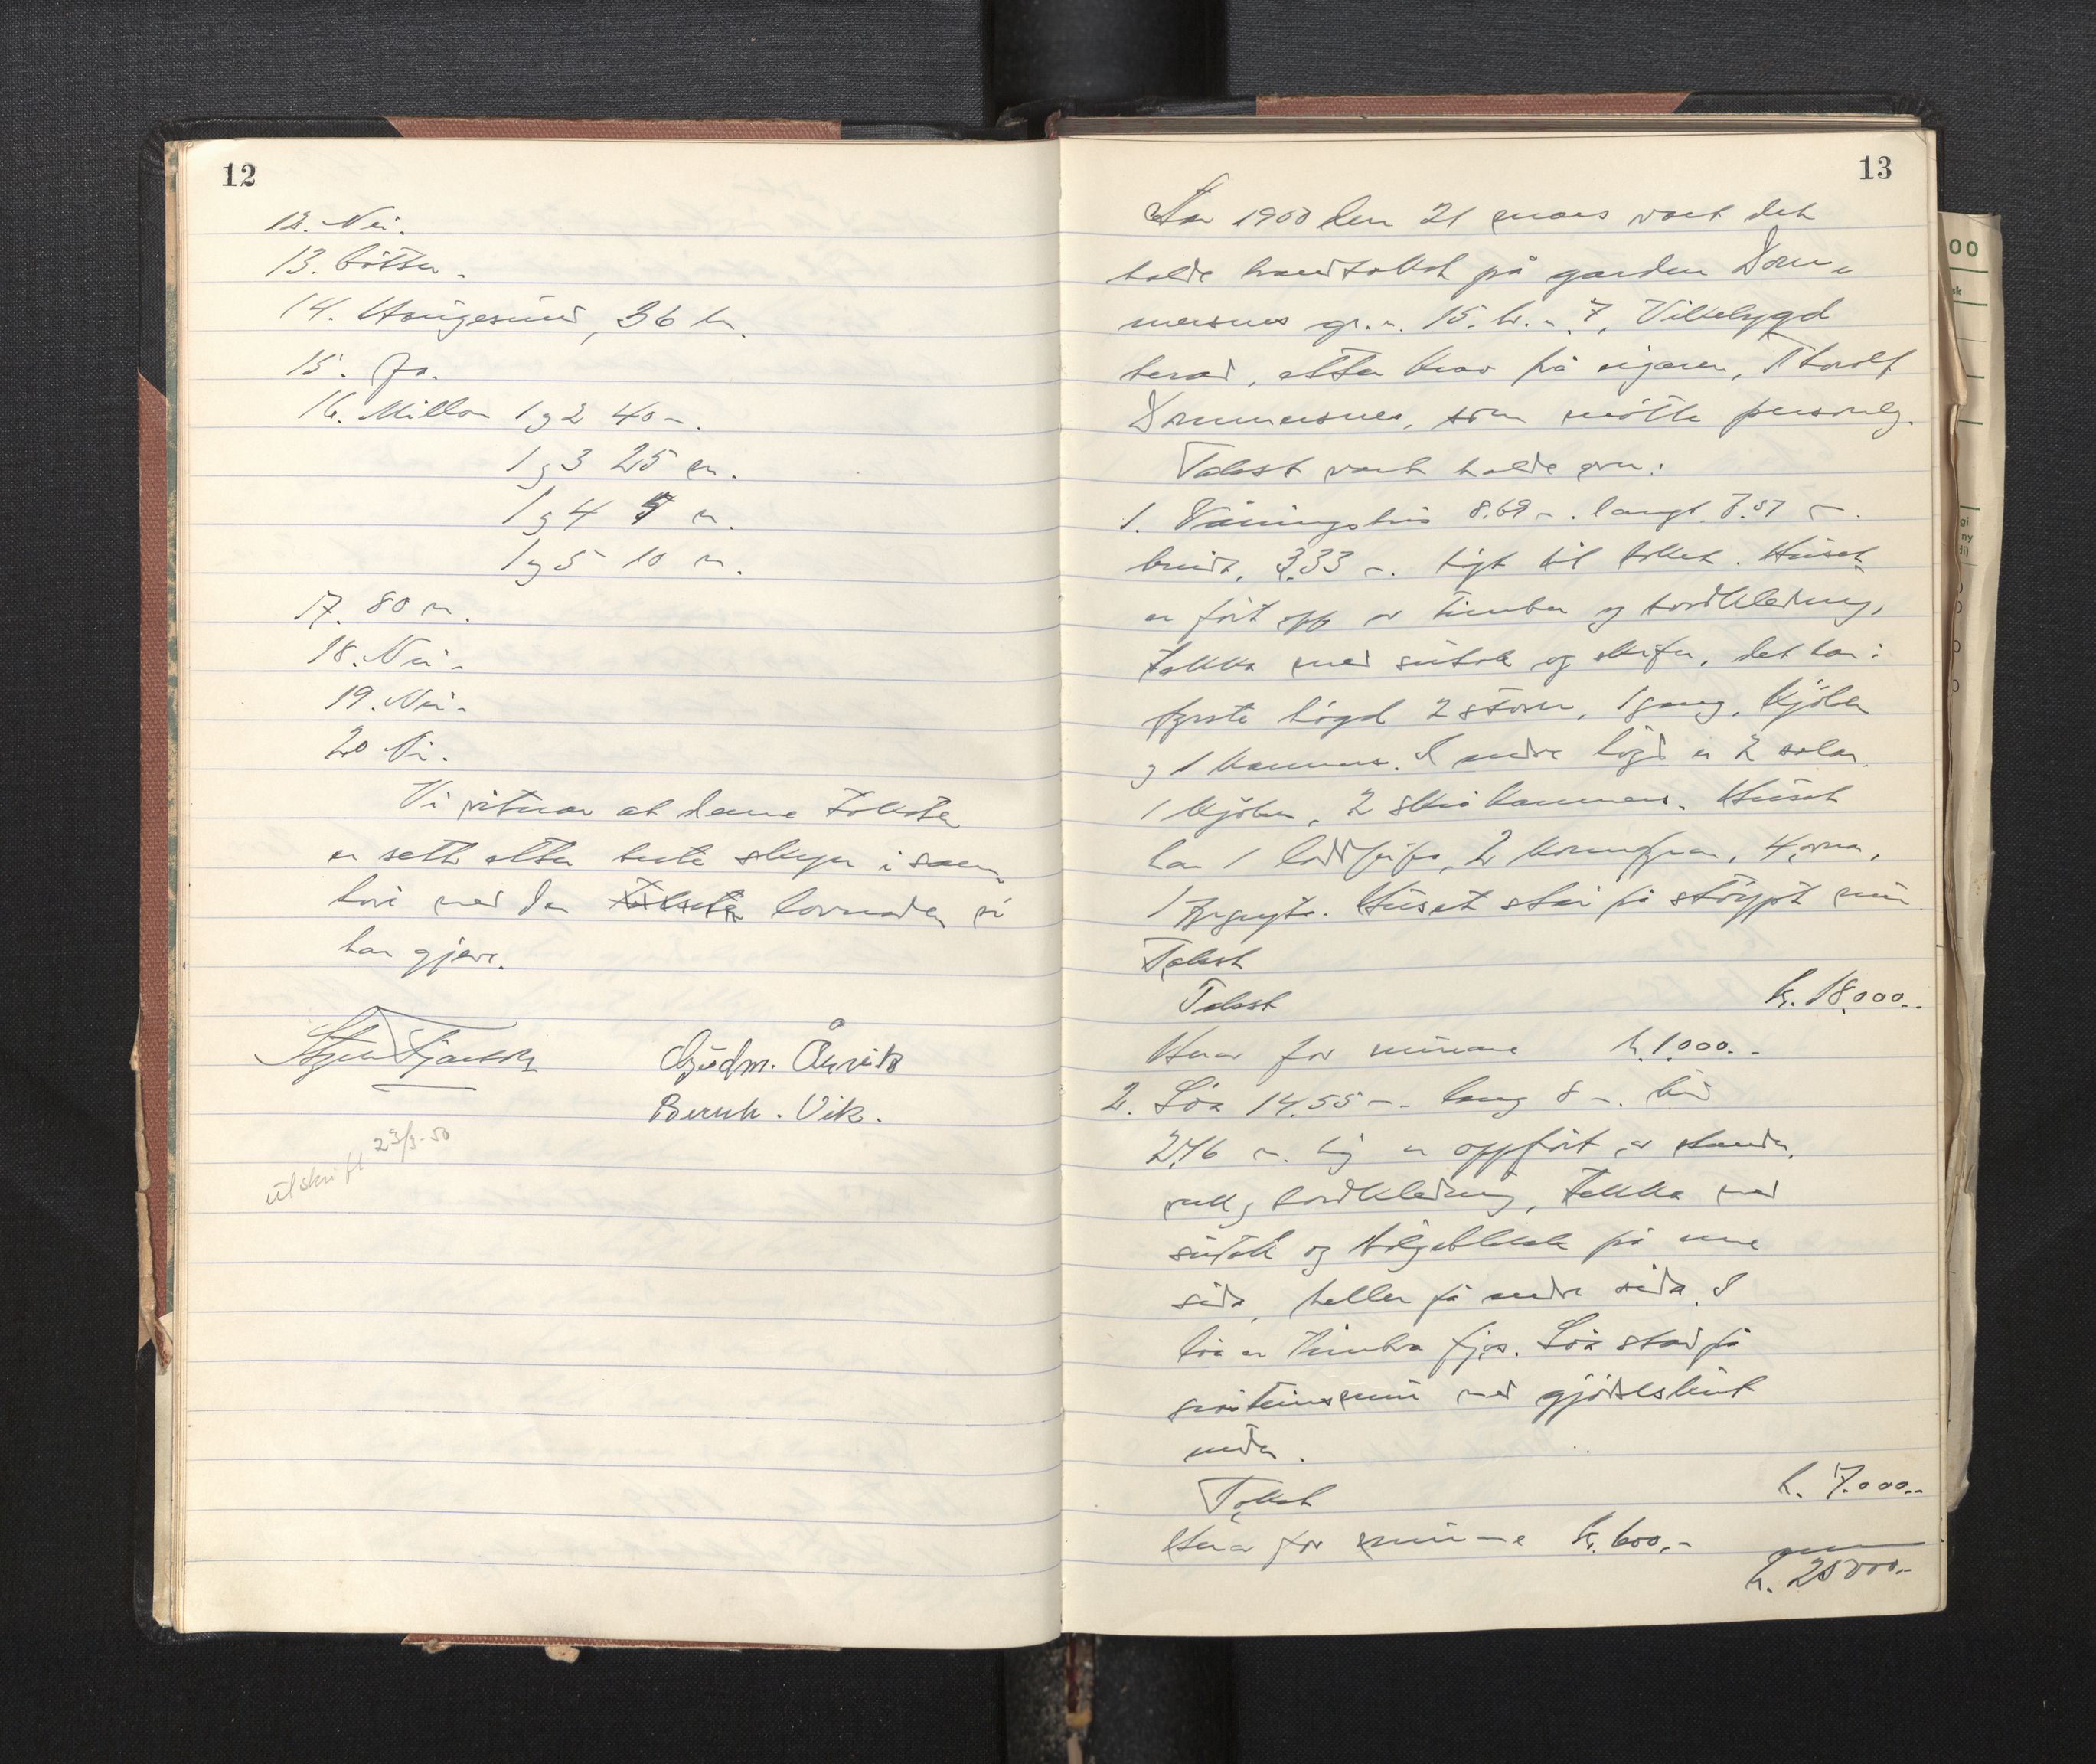 12
12. Nei.
13. Båtten.
14. Haugesund, 36 km.
15. Ja.
16. Millom 1 og 2 40 m.
1 og 3 25 m.
1 og 4 9 m.
1 og 5 10 m.
17. 80 m.
18. Nei.
19. Nei.
20 Nei.
Vi vitnar at denne taksten
er sett etter beste skyn i sam-
høve med den lovnaden vi
har gjeve.
Gudm. Åkvik
Bernh. Vik.
utskrift 23/3-50
13
År 1950 den 21 mars vart det
halde branntakst på garden Dom-
mersnes gr.n. 15. br.n. 7, Vikebygd
herad, etter krav frå eigaren, Thorolf
Dommersnes, som møtte personleg.
Takst vart halde over:
1. Våningshus 8.69 m. langt. 7.57 m.
breidt, 3.33 m. høgt til taket. Huset
er ført opp av timber og bordkledning,
tekka med sutak og skifer, det har i
fyrste høgd 2 stover, 1 gang, kjøken
og 1 kammer. I andre høgd er 2 salar,
1 kjøken, 2 skråkammers. Huset
har 1 loddpipe, 2 komfyrar, 4 omnar,
1 fyrgryte. Huset står på støypt mur
Takst
Takst kr. 18.000.-
Herav for murane kr. 1.000.-
2. Löa 14.55 m. lang 8 m. brei
2.46 m. høg er oppført av stander-
verk og bordkledning, tekka med
sutak og bølgeblekk på eine
sida, heller på andre sida. I
löa er timbra fjøs. Löa står på
gråsteinsmur med gjødselskut
under.
Takst kr. 7.000.-
Herav for murane kr. 600,-
kr. 25000.-